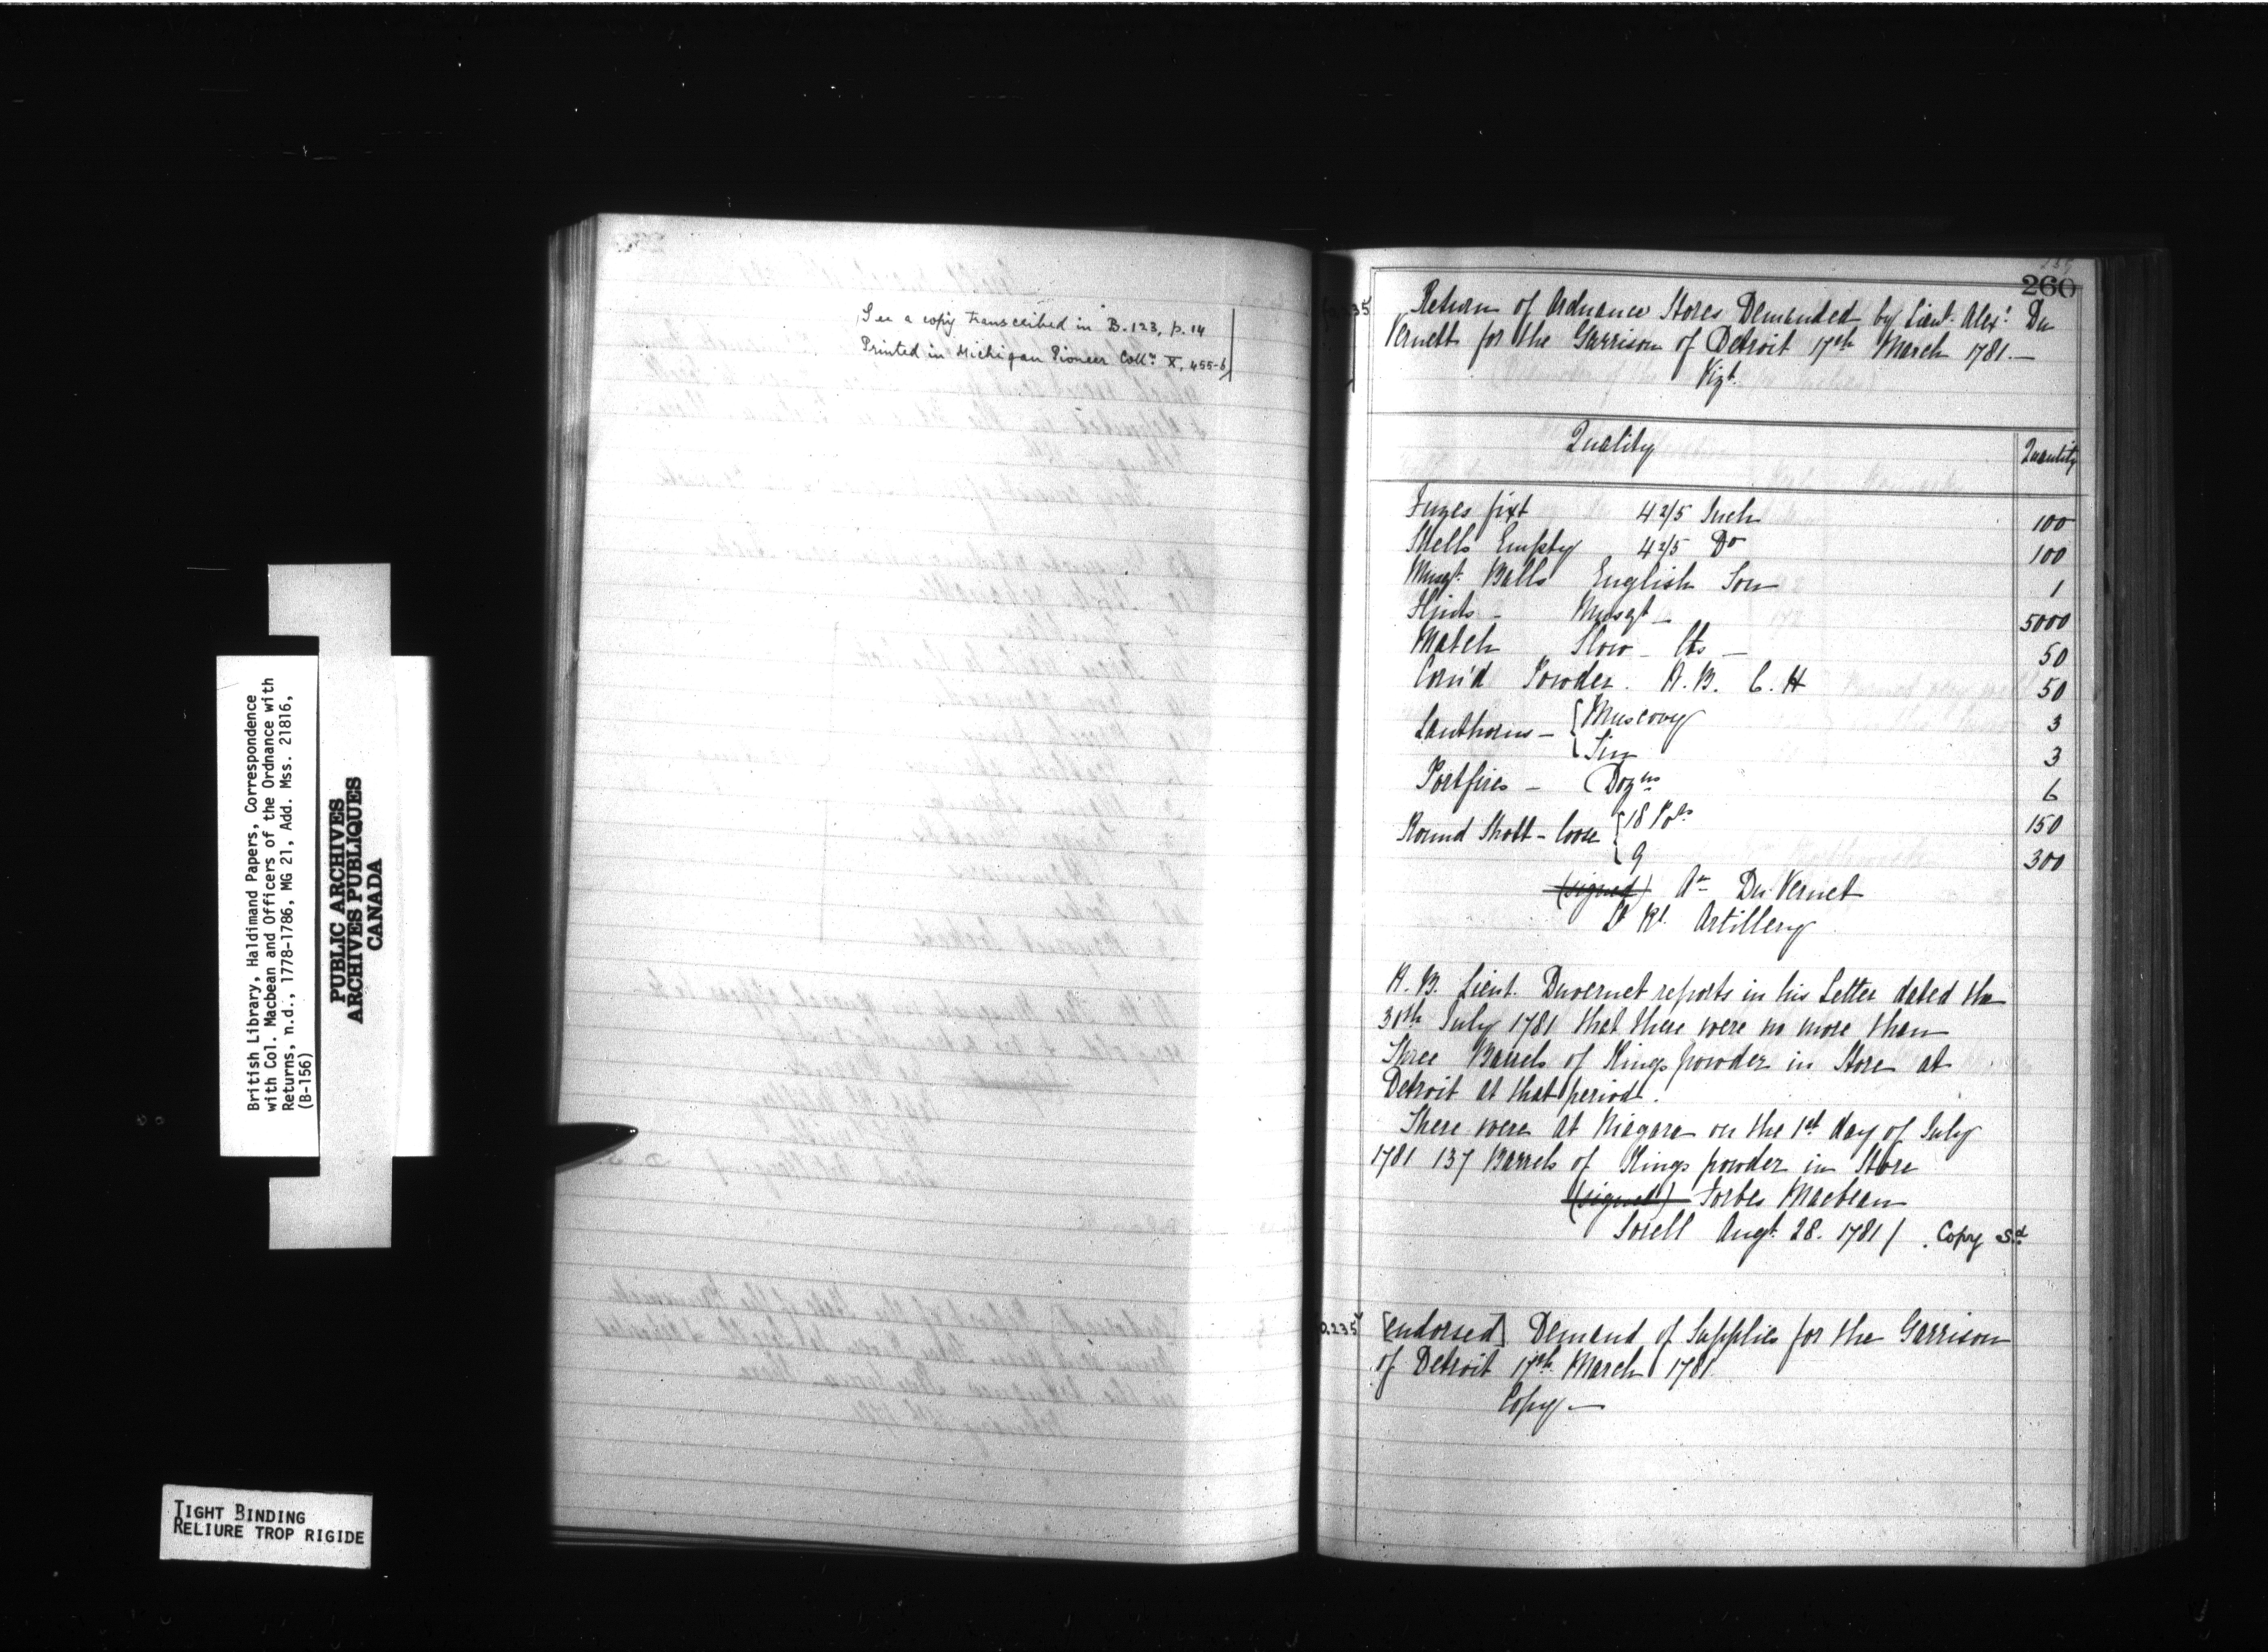 See a copy transcribed in B.123, p. 14
Printed in Michigan Pioneer Colln. X, 455-6
260
Return of Ordnance Stores Demanded by Lieut. Alexr. Du
Vernett for the Garrison of Detroit 17th March 1781.—
Vizt.
Quality Quantity
Fuzes fixt 4 2/5 Inch 100
Shells Empty 4 2/5 Do 100
Musqt. Balls English Ton 1
Flints - Musqt - 5000
Match Slow - lbs - 50
Corn'd Powder. W. B. C. H 50
Lanthorns - { Muscovy 3
{ Tin 3
Portfires - Dozns 6
Round Shott - loose { 18 Pdrs 150
{ 9 300
(signed) Ar. Du Vernet
Lt Rl. Artillery
N. B. Lieut. Duvernet reports in his Letter dated the
30th July 1781 that there were no more than
Three Barrels of Kings powder in Store at
Detroit at that period.
There were at Niagara on the 1st day of July
1781 137 Barrels of Kings powder in Store
(signed) Forbes Macbean
Sorell Augt. 28. 1781 / Copy Sd
0.235 [endorsed] Demand of Supplies for the Garrison
of Detroit 17th March 1781
Copy —
British Library, Haldimand Papers, Correspondence
with Col. Macbean and Officers of the Ordnance with
Returns, n.d., 1778-1786, MG 21, Add. Mss. 21816,
(B-156)
PUBLIC ARCHIVES
ARCHIVES PUBLIQUES
CANADA
TIGHT BINDING
RELIURE TROP RIGIDE